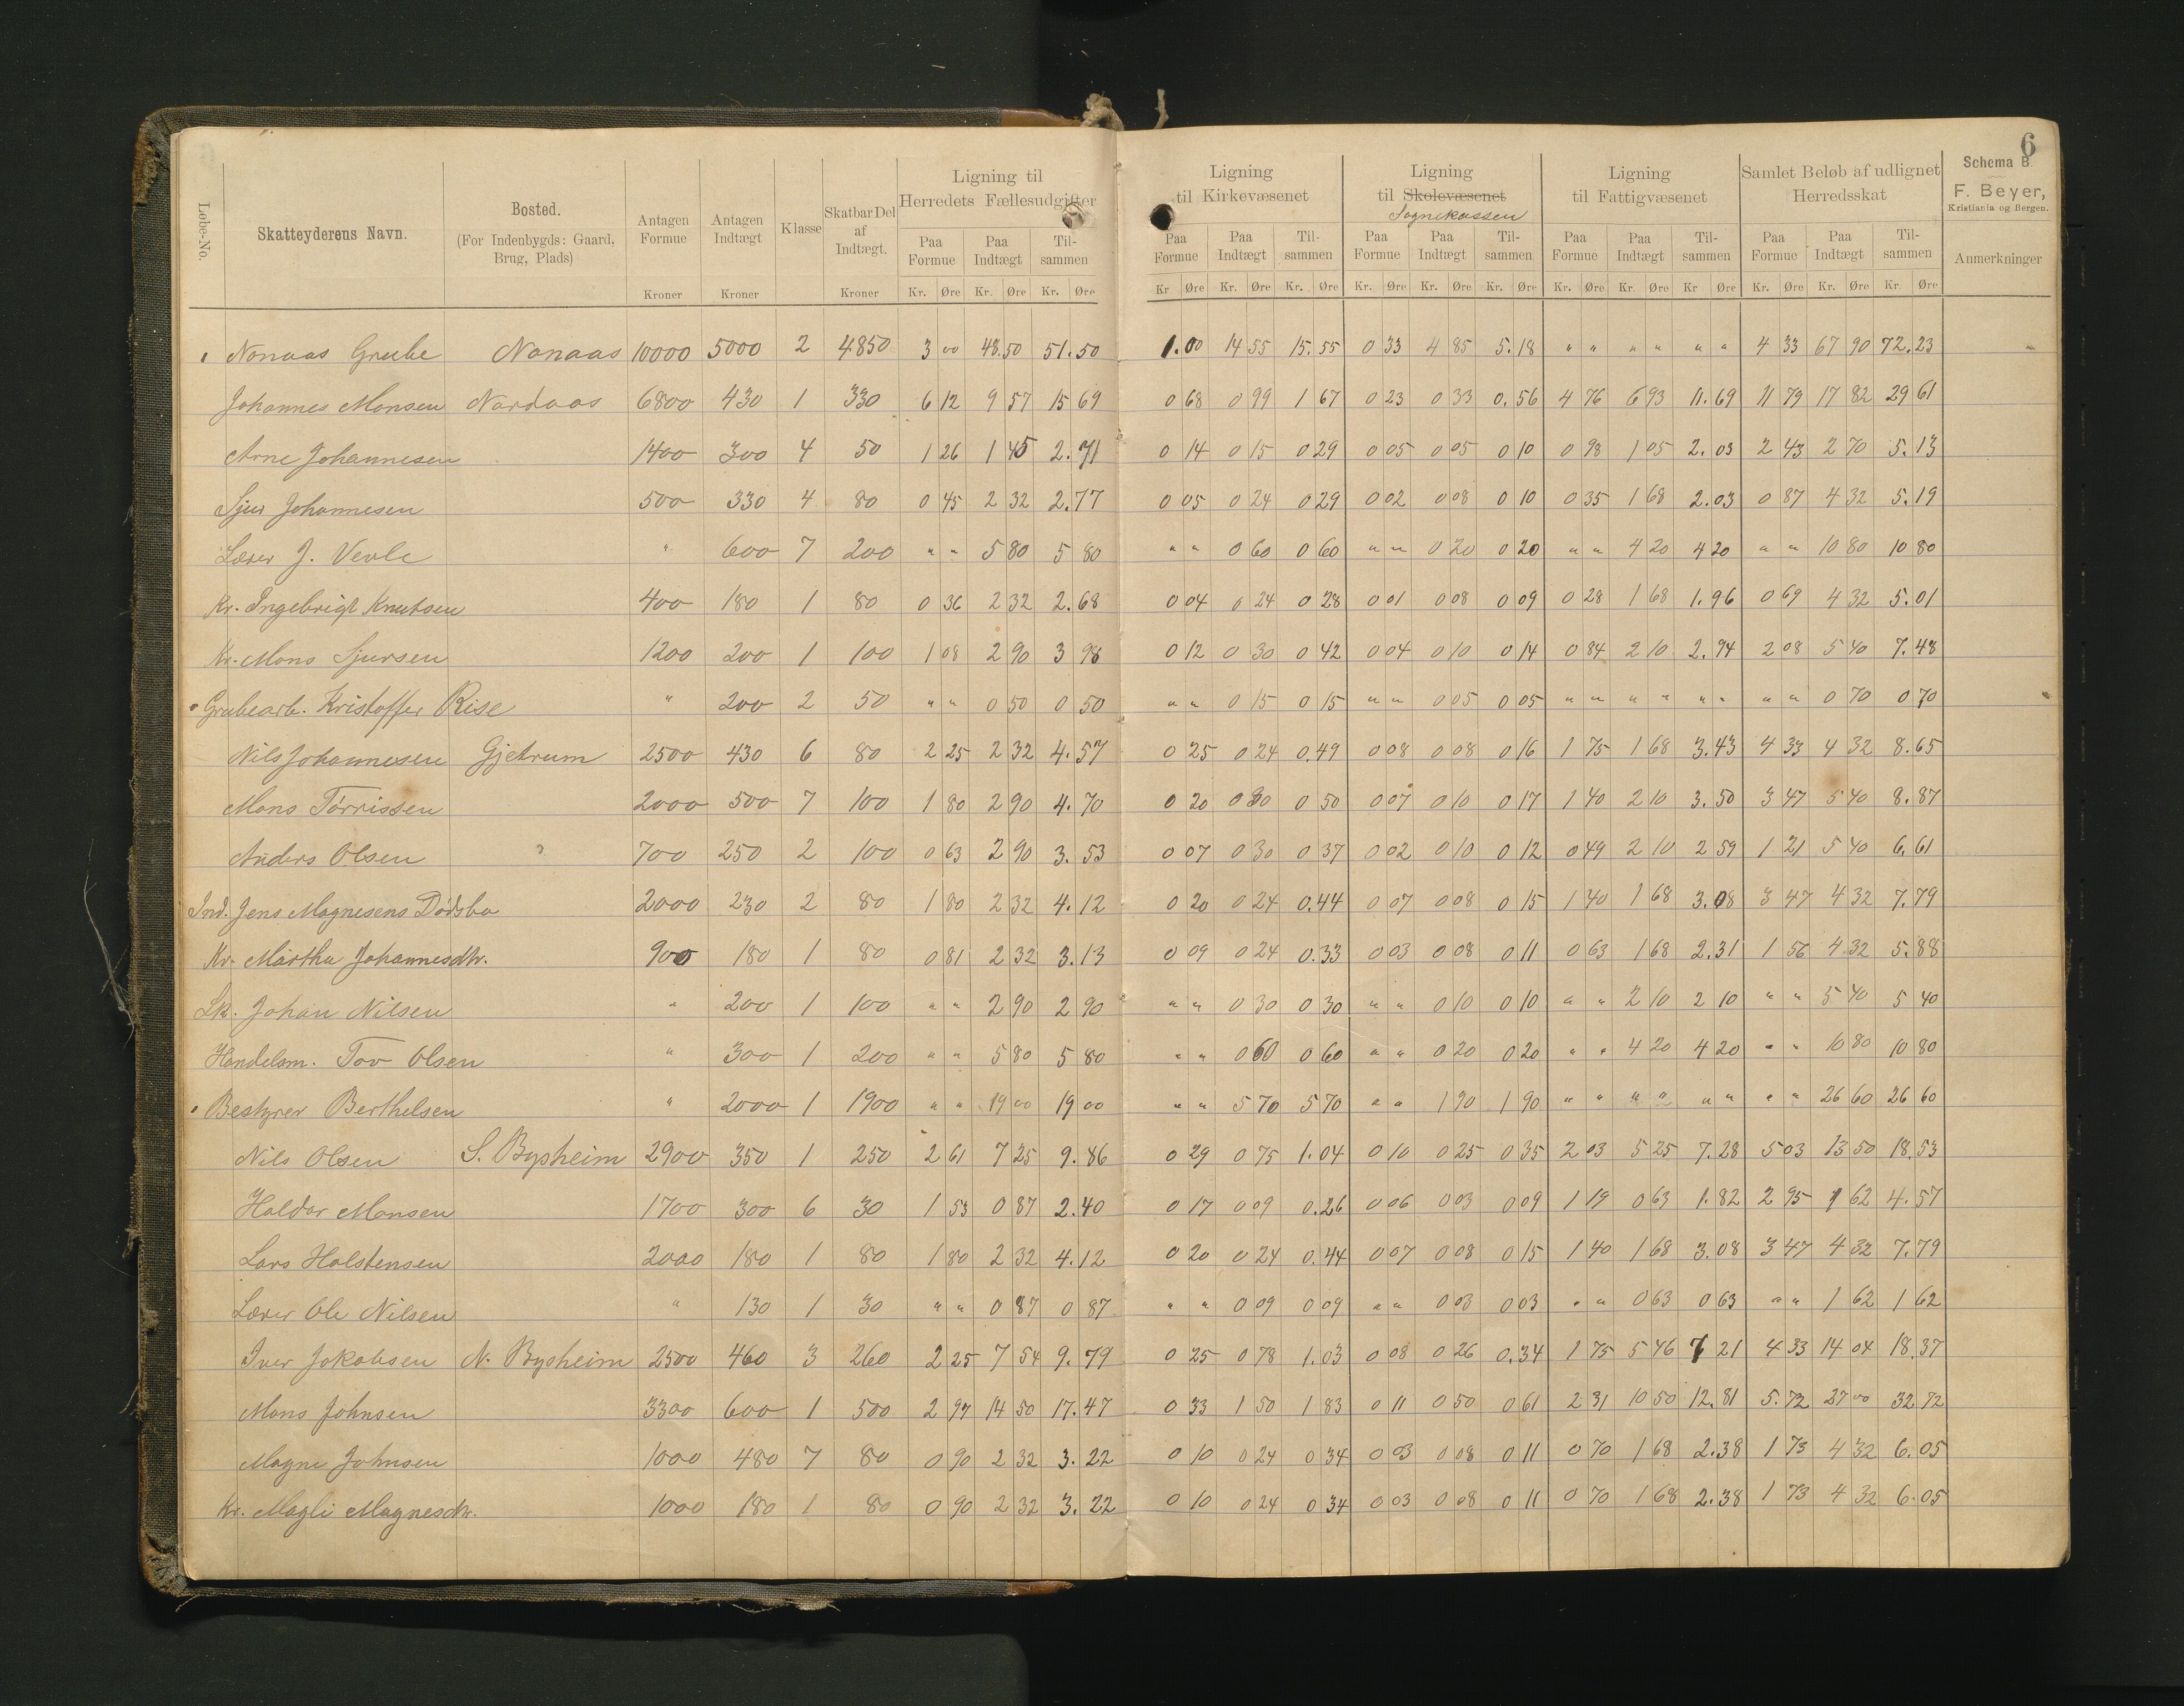 6
Schema B.
F. Beyer,
Kristiania og Bergen.
Løbe-No. Skatteyderens Navn. Bosted. (For Indenbygds: Gaard, Brug, Plads) Antagen Formue Antagen Indtægt Klasse Skatbar Del af Indtægt. Ligning til Herredets Fællesudgifter Ligning til Kirkevæsenet Ligning til Skolevæsenet Sognekassen Ligning til Fattigvæsenet Samlet Beløb af udlignet Herredsskat Anmerkninger
Paa Formue Paa Indtægt Tilsammen Paa Formue Paa Indtægt Tilsammen Paa Formue Paa Indtægt Tilsammen Paa Formue Paa Indtægt Tilsammen Paa Formue Paa Indtægt Tilsammen
Kroner Kroner Kroner Kr. Øre Kr. Øre Kr. Øre Kr Øre Kr. Øre Kr. Øre Kr. Øre Kr. Øre Kr. Øre Kr. Øre Kr. Øre Kr Øre Kr. Øre Kr. Øre Kr. Øre
Nonaas Grube Nonaas 10000 5000 2 4850 3 00 48.50 51.50 1.00 14 55 15.55 0 33 4 85 5.18 " " " " " " 4 33 67 90 72.23
Johannes Monsen Nordaas 6800 430 1 330 6 12 9 57 15 69 0 68 0 99 1 67 0 23 0 33 0.56 4 76 6 93 11.69 11 79 17 82 29 61
Arne Johannesen 1400 300 4 50 1 26 1 45 2.71 0 14 0 15 0 29 0 05 0 05 0 10 0 98 1 05 2.03 2 43 2 70 5.13
Sjur Johannesen 500 330 4 80 0 45 2 32 2.77 0 05 0 24 0 29 0 02 0 08 0 10 0 35 1 68 2.03 0 87 4 32 5.19
Lærer J. Vevle " 600 7 200 " " 5 80 5 80 " " 0 60 0 60 " " 0 20 0 20 " " 4 20 4 20 " " 10 80 10 80
Kr. Ingebrigt Knutsen 400 180 1 80 0 36 2 32 2.68 0 04 0 24 0 28 0 01 0 08 0 09 0 28 1 68 1.96 0 69 4 32 5.01
Kr. Mons Sjursen 1200 200 1 100 1 08 2 90 3 98 0 12 0 30 0 42 0 04 0 10 0 14 0 84 2 10 2.94 2 08 5 40 7.48
Grubearb. Kristoffer Rise " 200 2 50 " " 0 50 0 50 " " 0 15 0 15 " " 0 05 0 05 " " " " " " " " 0 70 0 70
Nils Johannesen Gjetrum 2500 430 6 80 2 25 2 32 4.57 0 25 0 24 0.49 0 08 0 08 0 16 1 75 1 68 3.43 4 33 4 32 8.65
Mons Tørrissen 2000 500 7 100 1 80 2 90 4.70 0 20 0 30 0 50 0 07 0 10 0 17 1 40 2 10 3.50 3 47 5 40 8.87
Anders Olsen " 700 250 2 100 0 63 2 90 3.53 0 07 0 30 0 37 0 02 0 10 0 12 0 49 2 10 2 59 1 21 5 40 6.61
Ind. Jens Magnesens Dødsbo 2000 230 2 80 1 80 2 32 4.12 0 20 0 24 0.44 0 07 0 08 0 15 1 40 1 68 3.08 3 47 4 32 7.79
Kr. Martha Johannesdtr. 900 180 1 80 0 81 2 32 3.13 0 09 0 24 0.33 0 03 0 08 0 11 0 63 1 68 2.31 1 56 4 32 5.88
Sk. Johan Nilsen " 200 1 100 " " 2 90 2 90 " " 0 30 0 30 " " 0 10 0 10 " " 2 10 2 10 " " 5 40 5 40
Handelsm. Tov Olsen " 300 1 200 " " 5 80 5 80 " " 0 60 0 60 " " 0 20 0 20 " " 4 20 4 20 " " 10 80 10 80
Bestyrer Berthelsen " 2000 1 1900 " " 19 00 19 00 " " 5 70 5 70 " " 1 90 1 90 " " " " " " " " 26 60 26 60
Nils Olsen S. Bysheim 2900 350 1 250 2 61 7 25 9.86 0 29 0 75 1.04 0 10 0 25 0 35 2 03 5 25 7.28 5 03 13 50 18.53
Haldor Monsen 1700 300 6 30 1 53 0 87 2.40 0 17 0 09 0.26 0 06 0 03 0 09 1 19 0 63 1.82 2 95 1 62 4.57
Lars Holstensen 2000 180 1 80 1 80 2 32 4.12 0 20 0 24 0.44 0 07 0 08 0 15 1 40 1 68 3.08 3 47 4 32 7.79
Lærer Ole Nilsen " 130 1 30 " " 0 87 0 87 " " 0 09 0 09 " " 0 03 0 03 " " 0 63 0 63 " " 1 62 1 62
Iver Jakobsen N. Bysheim 2500 460 3 260 2 25 7 54 9.79 0 25 0 78 1.03 0 08 0 26 0.34 1 75 5 46 7 21 4 33 14 04 18.37
Mons Johnsen 3300 600 1 500 2 97 14 50 17.47 0 33 1 50 1 83 0 11 0 50 0 61 2 31 10 50 12.81 5.72 27 00 32 72
Magne Johnsen 1000 480 7 80 0 90 2 32 3.22 0 10 0 24 0 34 0 03 0 08 0 11 0 70 1 68 2.38 1 73 4 32 6.05
Kr. Magli Magnesdtr. 1000 180 1 80 0 90 2 32 3.22 0 10 0 24 0 34 0 03 0 08 0 11 0 70 1 68 2.38 1 73 4 32 6.05